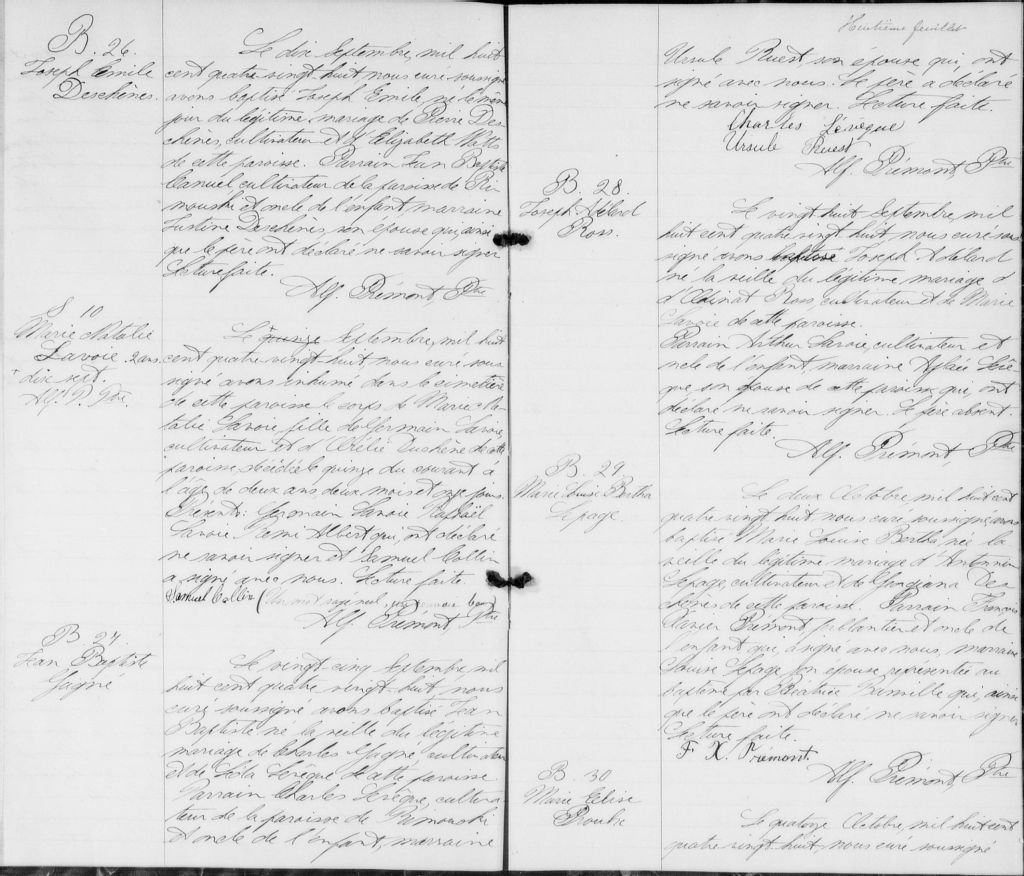 B. 26.
Joseph Emile
Deschènes.
Le dix Septembre, mil huit
cent quatre vingt huit nous curé soussigné
avons baptisé Joseph Emile, né le même
jour du légitime mariage de Pierre Des-
chènes, cultivateur et d'Elizabeth Watts
de cette paroisse. Parrain Jean Baptiste
Canuel cultivateur de la paroisse de Ri-
mouski et oncle de l'enfant, marraine
Justine Deschènes, son épouse qui, ainsi
que le père ont déclaré ne savoir signer
Lecture faite.
Alf. Prémont Ptre
S 10
Marie Natalie
Lavoie 2 ans
+ dix sept.
Alf. P. Ptre.
Le quinze Septembre, mil huit
cent quatre vingt huit, nous curé sous-
signé avons inhumé dans le cimetière
de cette paroisse le corps de Marie Na-
talie Lavoie fille de Germain Lavoie,
cultivateur et d'Aurélie Duchène de cette
paroisse, décédée le quinze du courant à
l'âge de deux ans deux mois et onze jours.
Présents: Germain Lavoie Raphaël
Lavoie Rémi Albert qui, ont déclaré
ne savoir signer et Samuel Collin
a signé avec nous. Lecture faite
Samuel Collin (Un mot rayé nul
Alf. Prémont, Ptre
B 27
Jean Baptiste
Gagné
Le vingt cinq Septembre, mil
huit cent quatre vingt huit, nous
curé soussigné avons baptisé Jean
Baptiste né la veille du légitime
mariage de Charles Gagné, cultivateur
et de Leda Lévèque de cette paroisse.
Parrain Charles Levèque, cultiva-
teur de la paroisse de Rimouski
et oncle de l'enfant, marraine
Huitième feuillet
Ursule Ruest son épouse qui, ont
signé avec nous. Le père a déclaré
ne savoir signer. Lecture faite.
Charles Lévèque
Ursule Ruest
Alf. Prémont, Ptre
B. 28.
Joseph Adelard
Ross.
Le vingt huit Septembre, mil
huit cent quatre vingt huit, nous curé sous-
signé avons baptisé Joseph Adelard
né la veille du légitime mariage d
Ross, cultivateur et de Marie
Lavoie de cette paroisse.
Parrain Arthur Lavoie, cultivateur et
oncle de l'enfant, marraine Lévè-
que son épouse de cette paroisse qui, ont
déclaré ne savoir signer. Le père absent.
Lecture faite.
Alf. Prémont, Ptre
B. 29
Marie Louise Bertha
Lepage.
Le deux Octobre mil huit cent
quatre vingt huit nous curé soussigné avons
baptisé Marie Louise Bertha née la
veille du légitime mariage d'Antonin
Lepage, cultivateur et de Georgeana Des-
chènes de cette paroisse. Parrain François
Xavier Prémont et oncle de
l'enfant qui, a signé avec nous, marraine
Louise Lepage son épouse, représentée au
baptême par Béatrice qui, ainsi
que le père ont déclaré ne savoir signer
Lecture faite.
F. X. Prémont.
Alf. Prémont, Ptre
B. 30
Marie Elise
Proulx
Le quatorze Octobre, mil huit cent
quatre vingt huit, nous curé soussigné